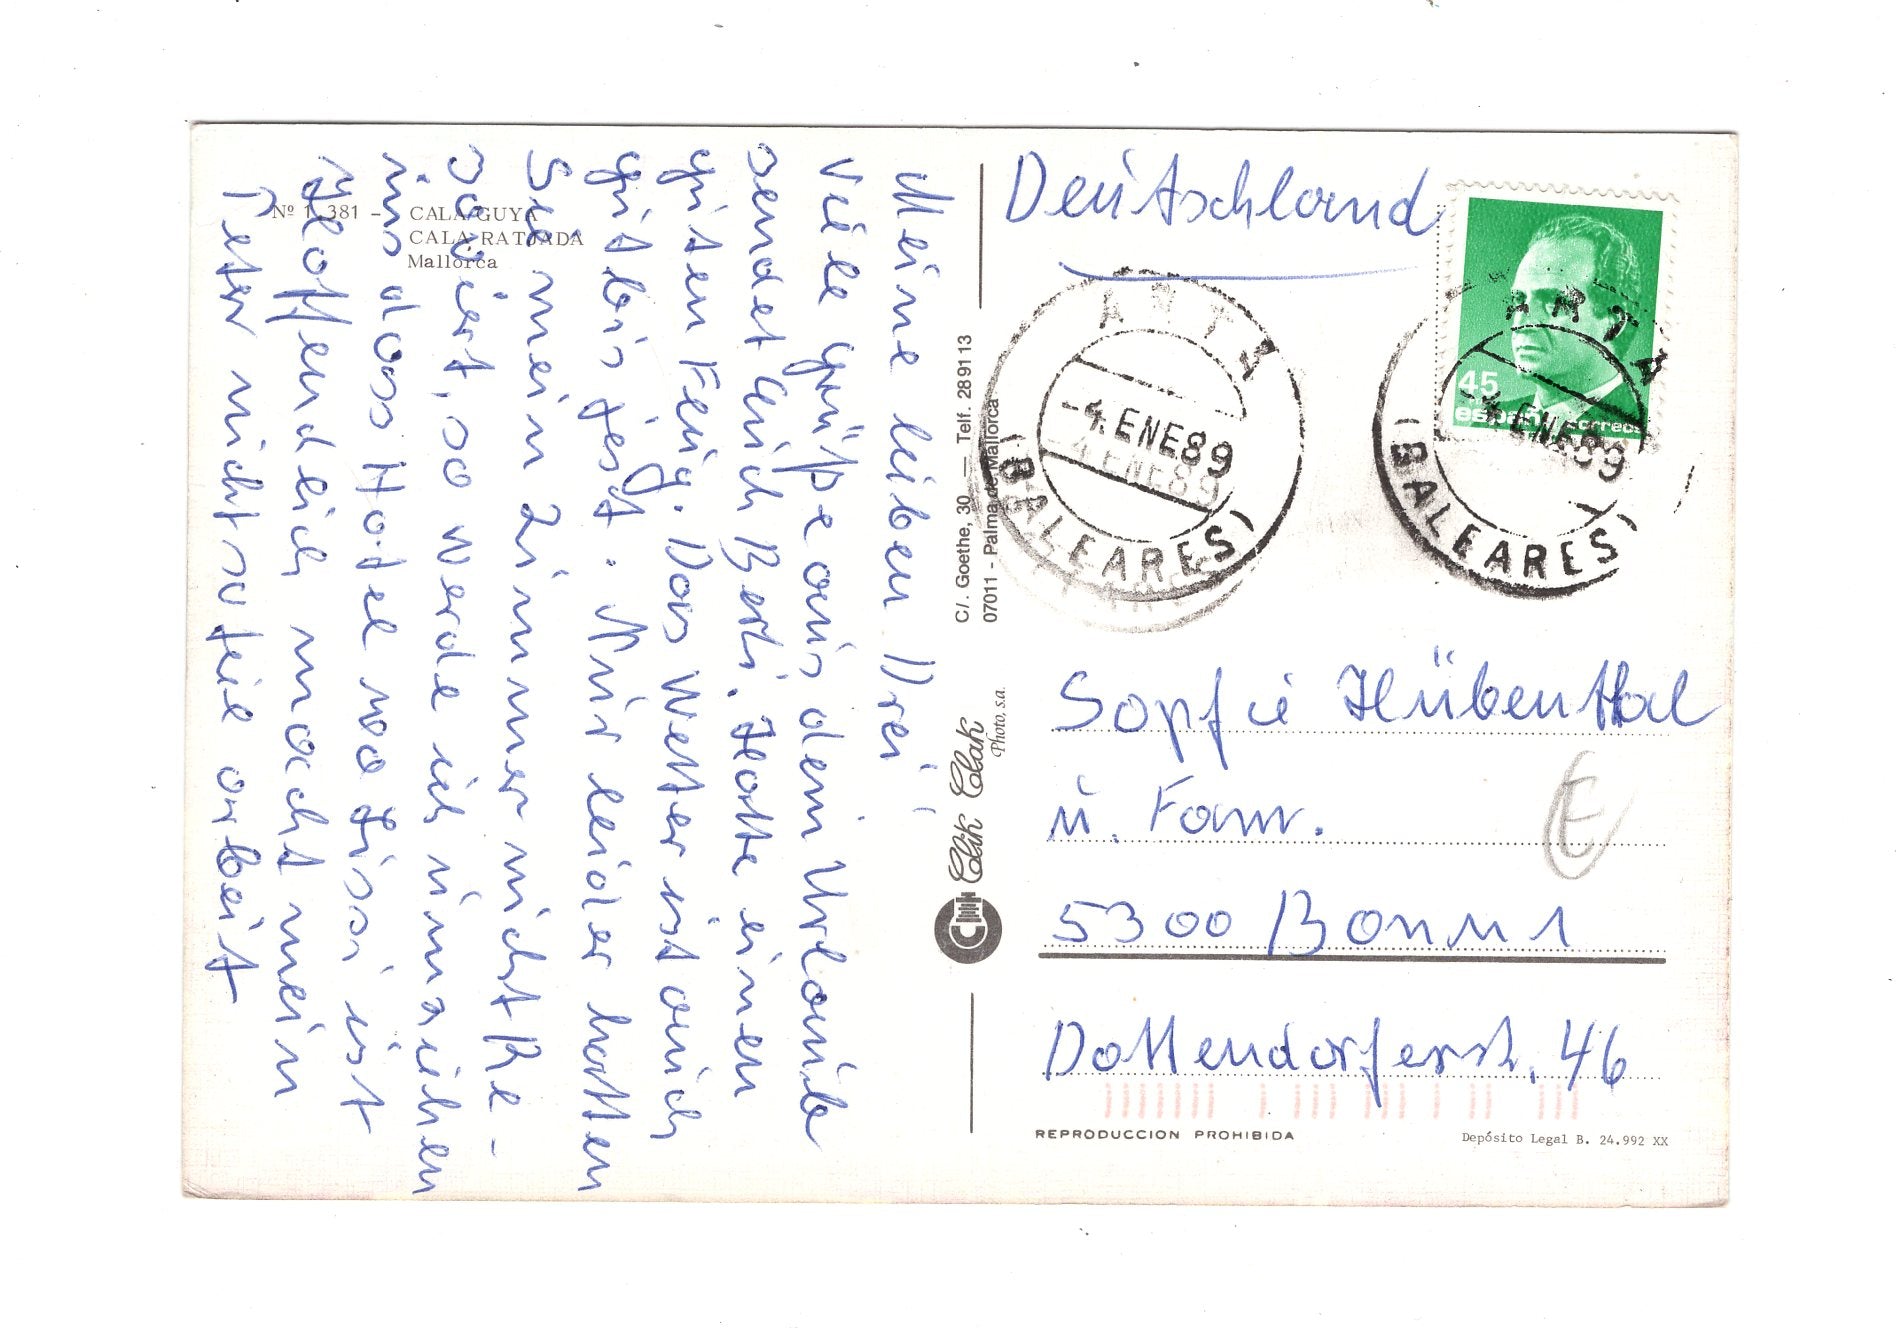 Meine lieben Drei!
Viele Grüße aus dem Urlaub
sendet Euch Berti. Hatte einen
guten Flug. Das Wetter ist auch
gut bis jetzt. Nur leider hatten
Sie mein Zimmer nicht Re-
so werde ich umziehen
ins das Hotel wo Sissi ist
Hoffendlich macht mein
Peter nicht so viel arbeit
Nº 1.381 - CALA GUYA
CALA RATJADA
Mallorca
C/. Goethe, 30 — Telf. 28 91 13
07011 - Palma de Mallorca
Clik Clak
Photo, s.a.
Deutschland
45
españa correos
ARTA
-4 ENE 89
(BALEARES)
ARTA
-4 ENE 89
(BALEARES)
Sopfie Hübenthal
u. Fam.
5300 Bonn 1
Dottendorferstr. 46
REPRODUCCION PROHIBIDA
Depósito Legal B. 24.992 XX